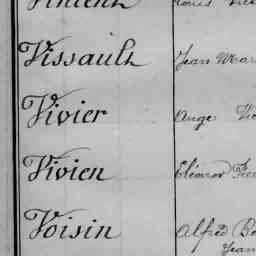 Vincent Louis
Vissault Jean Mar
Vivier Ange
Vivien Eléonor
Voisin Alfred
Jean